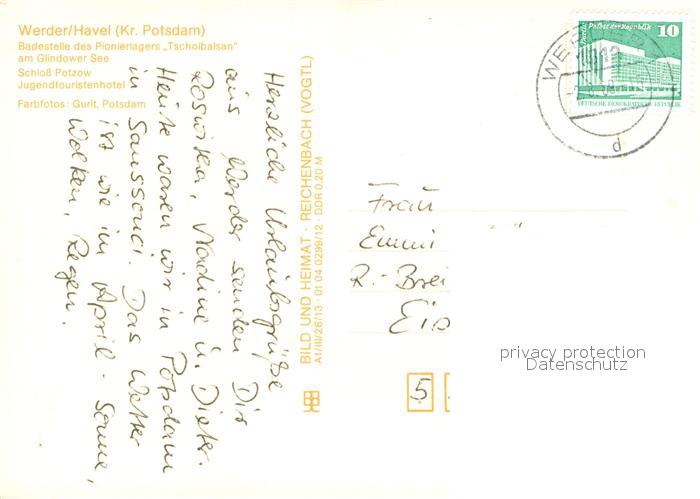 Werder/Havel (Kr. Potsdam)
Badestelle des Pionierlagers „Tschoibalsan"
am Glindower See
Schloß Petzow
Jugendtouristenhotel
Farbfotos: Gurlt, Potsdam
Herzliche Urlaubsgrüße
aus Werder senden Dir
Roswitha, Nadine u. Dieter.
Heute waren wir in Potsdam
in Sanssouci. Das Wetter
ist wie im April - Sonne,
Wolken, Regen.
BILD UND HEIMAT · REICHENBACH (VOGTL)
A1/III/26/13 · 01 04 0299/12 · DDR 0,20 M
Palast der Republik
10
DEUTSCHE DEMOKRATISCHE REPUBLIK
d
Frau
Emmi
R.-Brei
Eis
5
privacy protection
Datenschutz